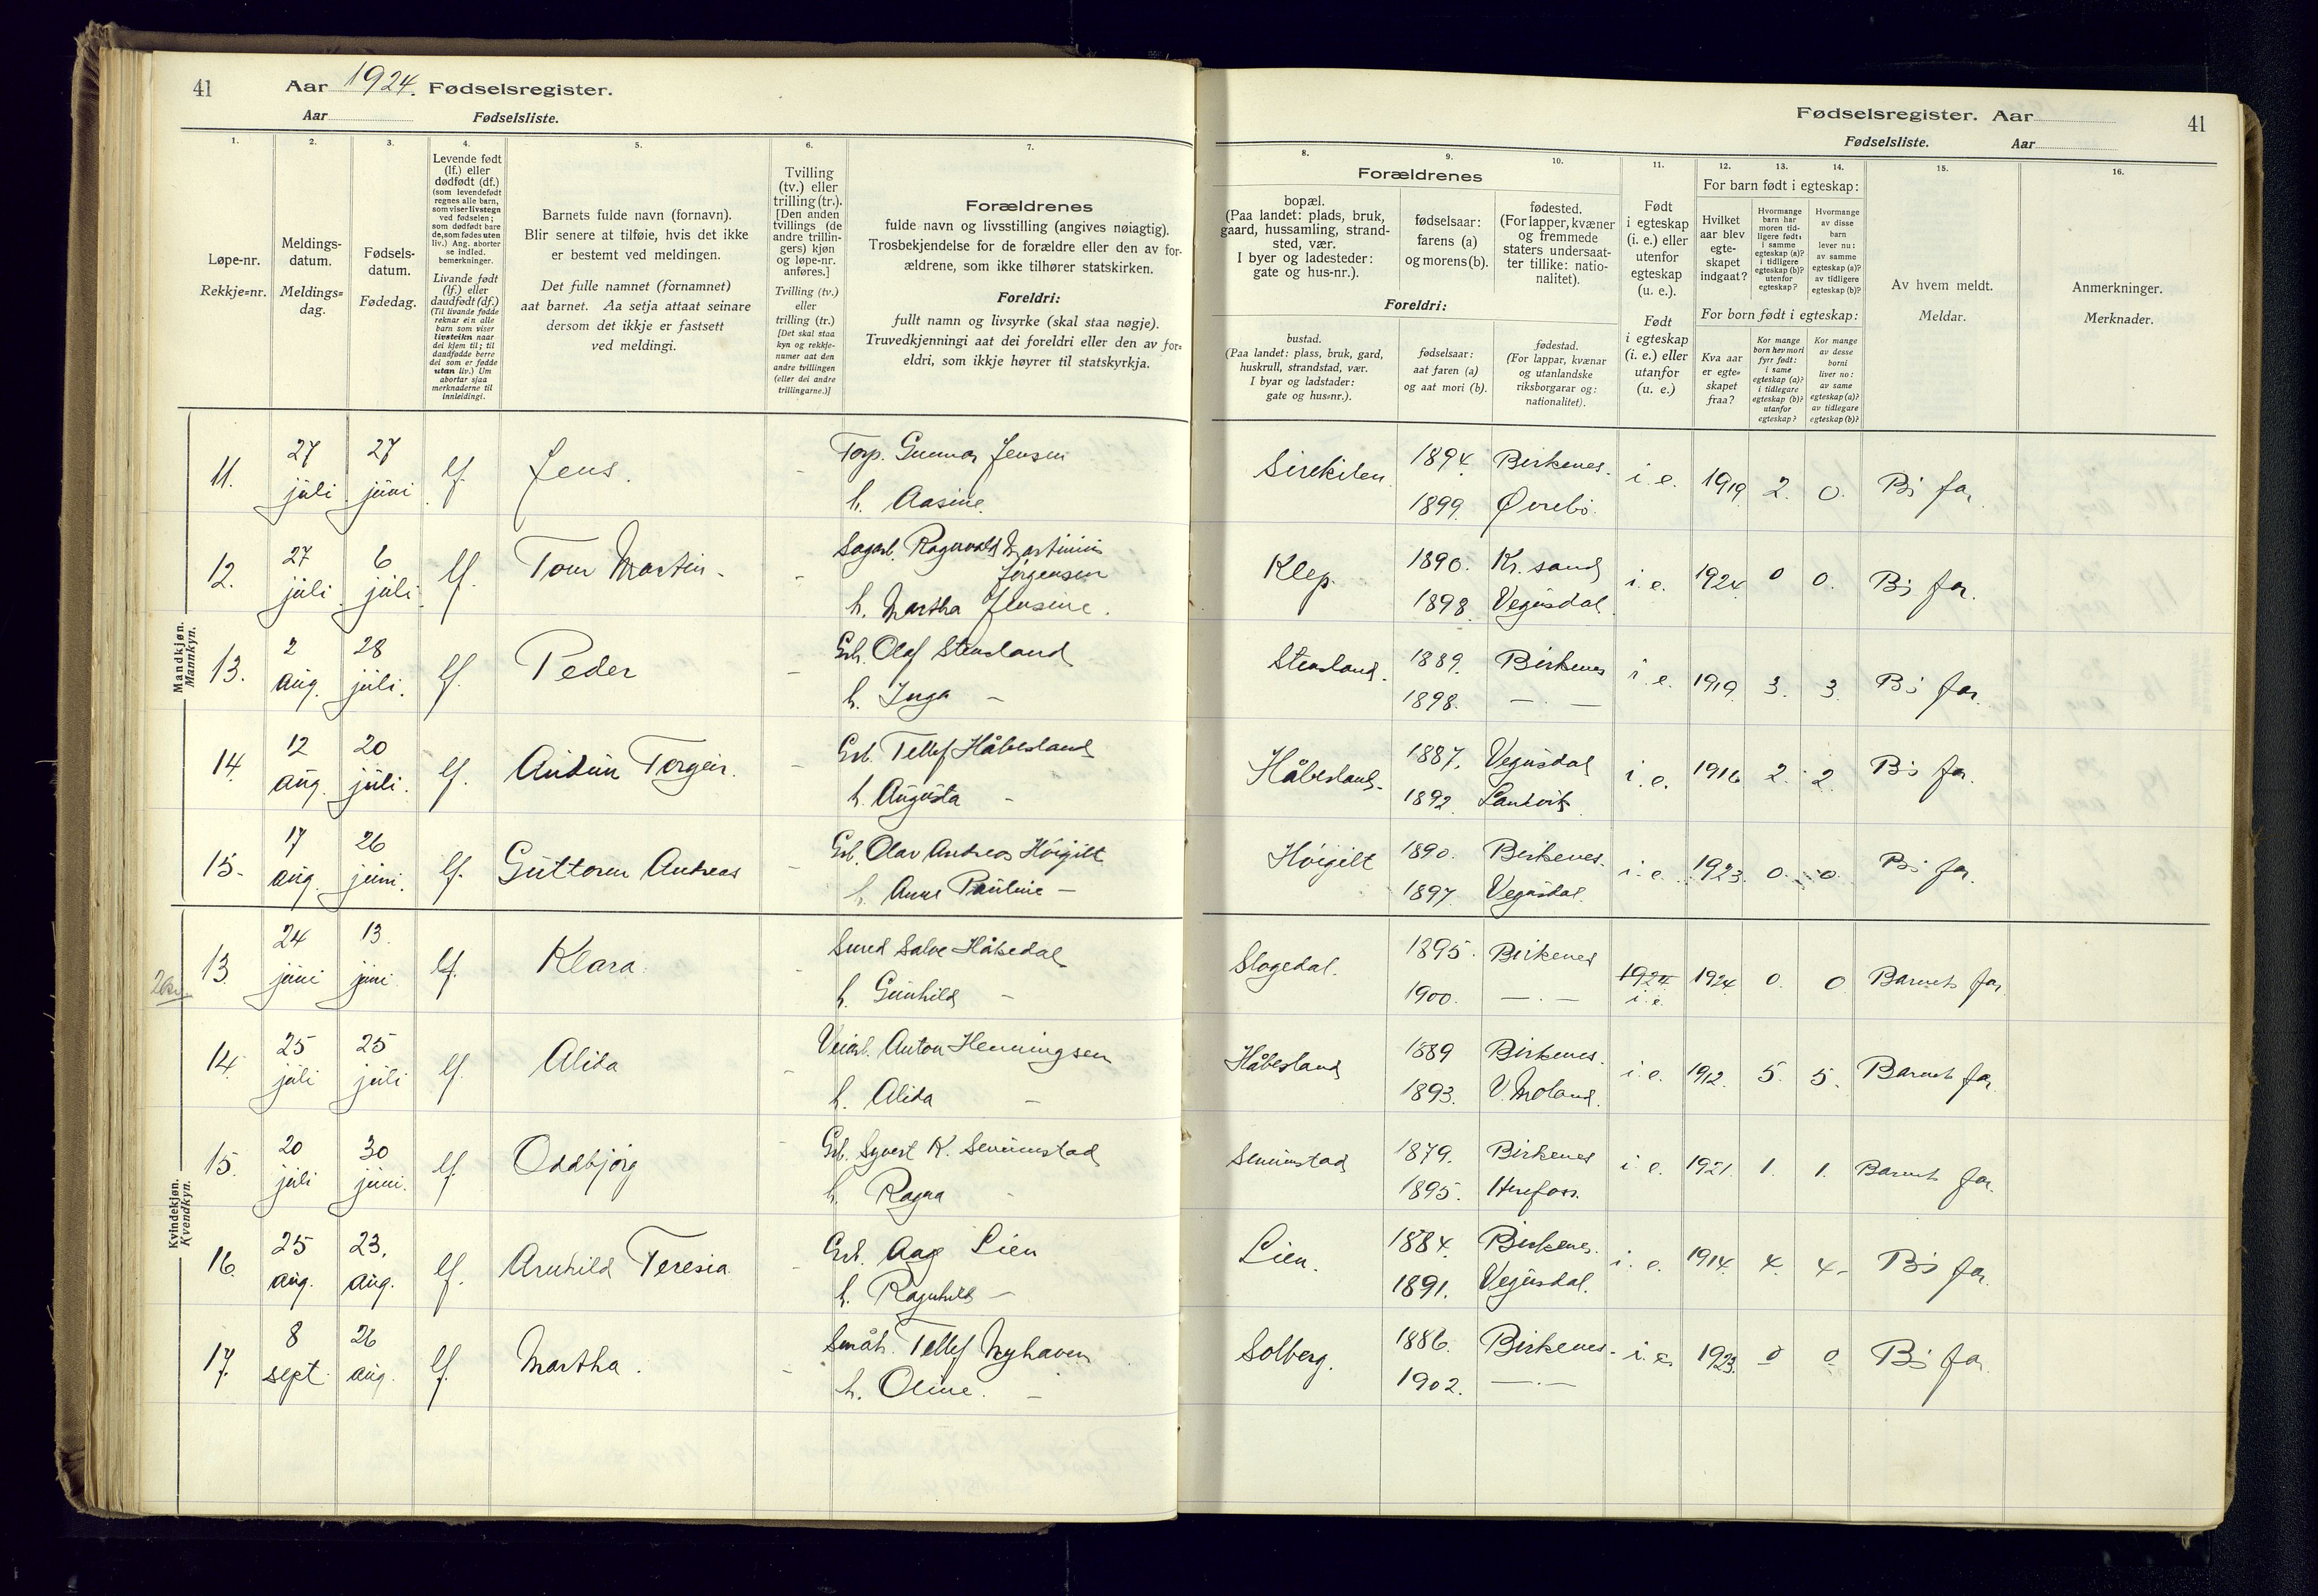 41
Aar 1924. Fødselsregister.
Aar Fødselsliste.
1.
Løpe-nr.
Rekkje=nr.
2.
Meldings-
datum.
Meldings=
dag.
3.
Fødsels-
datum.
Fødedag.
4.
Levende født
(lf.) eller
dødfødt (df.)
(som levendefødt
regnes alle barn,
som viser livstegn
ved fødselen;
som dødfødt bare
de, som fødes uten
liv.) Ang. aborter
se indled.
bemerkninger.
Livande født
(lf.) eller
daudfødt (df.)
(Til livande fødde
reknar ein alle
barn som viser
livsteikn naar
dei kjem til; til
daudfødde berre
dei som er fødde
utan liv.) Um
abortar sjaa
merknaderne til
innleidingi.
5.
Barnets fulde navn (fornavn).
Blir senere at tilføie, hvis det ikke
er bestemt ved meldingen.
Det fulle namnet (fornamnet)
aat barnet. Aa setja attaat seinare
dersom det ikkje er fastsett
ved meldingi.
6.
Tvilling
(tv.) eller
trilling (tr.).
[Den anden
tvillings (de
andre trillin-
gers) kjøn
og løpe-nr.
anføres.]
Tvilling (tv.)
eller
trilling (tr.)
[Det skal staa
kyn og rekkje-
numer aat den
andre tvillingen
(eller dei andre
trillingarne.)]
7.
Forældrenes
fulde navn og livsstilling (angives nøiagtig).
Trosbekjendelse for de forældre eller den av for-
ældrene, som ikke tilhører statskirken.
Foreldri:
fullt namn og livsyrke (skal staa nøgje).
Truvedkjenningi aat dei foreldri eller den av for=
eldri, som ikkje høyrer til statskyrkja.
Fødselsregister. Aar
41
Fødselsliste. Aar
8.
Forældrenes
bopæl.
(Paa landet: plads, bruk,
gaard, hussamling, strand-
sted, vær.
I byer og ladesteder:
gate og hus-nr.).
Foreldri:
bustad.
(Paa landet: plass, bruk, gard,
huskrull, strandstad, vær.
I byar og ladstader:
gate og hus=nr.).
9.
fødselsaar:
farens (a)
og morens (b).
fødselsaar:
aat faren (a)
og aat mori (b).
10.
fødested.
(For lapper, kvæner
og fremmede
staters undersaat-
ter tillike: natio-
nalitet).
fødestad.
(For lappar, kvænar
og utanlandske
riksborgarar og:
nationalitet).
11.
Født
i egteskap
(i. e.) eller
utenfor
egteskap
(u. e.).
Født
i egteskap
(i. e.) eller
utanfor
(u. e.)
12.
For barn født i egteskap:
Hvilket
aar blev
egte-
skapet
indgaat?
For born født i egteskap:
Kva aar
er egte=
skapet
fraa?
13.
Hvormange
barn har
moren tid-
ligere født:
i samme
egteskap (a)?
i tidligere
egteskap (b)?
utenfor
egteskap?
Kor mange
born hev mori
fyrr født:
i same
egteskap (a)?
i tidlegare
egteskap (b)?
utanfor
egteskap?
14.
Hvormange
av disse
barn
lever nu:
av samme
egteskap (a)?
av tidligere
egteskap (b)?
Kor mange
av desse
borni
liver no:
av same
egteskap (a)?
av tidlegare
egteskap (b)?
15.
Av hvem meldt.
Meldar.
16.
Anmerkninger.
Merknader.
Mandkjøn.
Mannkyn.
11. 27 juli 27 juni lf. Jens. - Torp. Gunnar Jensen
h. Aasine.
Sirekilen 1894. Birkenes. i. e. 1919 2. 0. B's far.
1899. Øvrebö.
12. 27 juli 6 juli lf. Tom Martin. - Sagarb. Ragnvald Martinius
Jörgensen
h. Martha Jensine.
Klep. 1890. Kr.sand i. e. 1924 0 0. B's far.
1898 Vegusdal.
13. 2 aug. 28 juli. lf. Peder - Grb. Olaf Stensland
h. Inga -
Stensland. 1889. Birkenes i. e. 1919 3. 3. B's far.
1898. — . —
14. 12 aug. 20 juli. lf. Audun Torgeir. - Grb. Tellef Håbesland
h. Augusta -
Håbesland. 1887. Vegusdal i. e. 1916 2. 2. B's far.
1892 Landvik
15. 17 aug. 26 juni. lf. Guttorm Andreas - Grb. Olav Andreas Höigilt
h. Anne Pauline -
Höigilt 1890. Birkenes. i. e. 1923. 0. 0. B's far.
1897. Vegusdal.
Kvindekjøn.
Kvendkyn.
13. 24 juni 13. juni lf. Klara. - Smed Salve Håbedal
h. Gunhild -
Slogedal. 1895. Birkenes 1924 i. e. 1924 0. 0 Barnets far.
1900. — . —
14. 25 juli 25 juli lf. Alida - Veiarb. Anton Henningsen
h. Alida -
Håbesland 1889 Birkenes. i. e. 1912. 5. 5. Barnets far.
1893. V. Moland.
15. 20 juli 30 juni. lf. Oddbjörg - Grb. Syvert K. Senumstad
h. Ragna -
Senumstad 1879. Birkenes i. e. 1921. 1. 1. Barnets far.
1895. Herefoss.
16. 25 aug. 23. aug. lf. Arnhild Teresia - Grb. Aag Lien
h. Ragnhild -
Lien. 1884. Birkenes. i. e. 1914. 4. 4. B's far.
1891. Vegusdal.
17. 8 sept. 26 aug. lf. Martha. - Småbr. Tellef Nyhaven
h. Oline. -
Solberg. 1886. Birkenes. i. e. 1923. 0 0 B's far.
1902. — . —